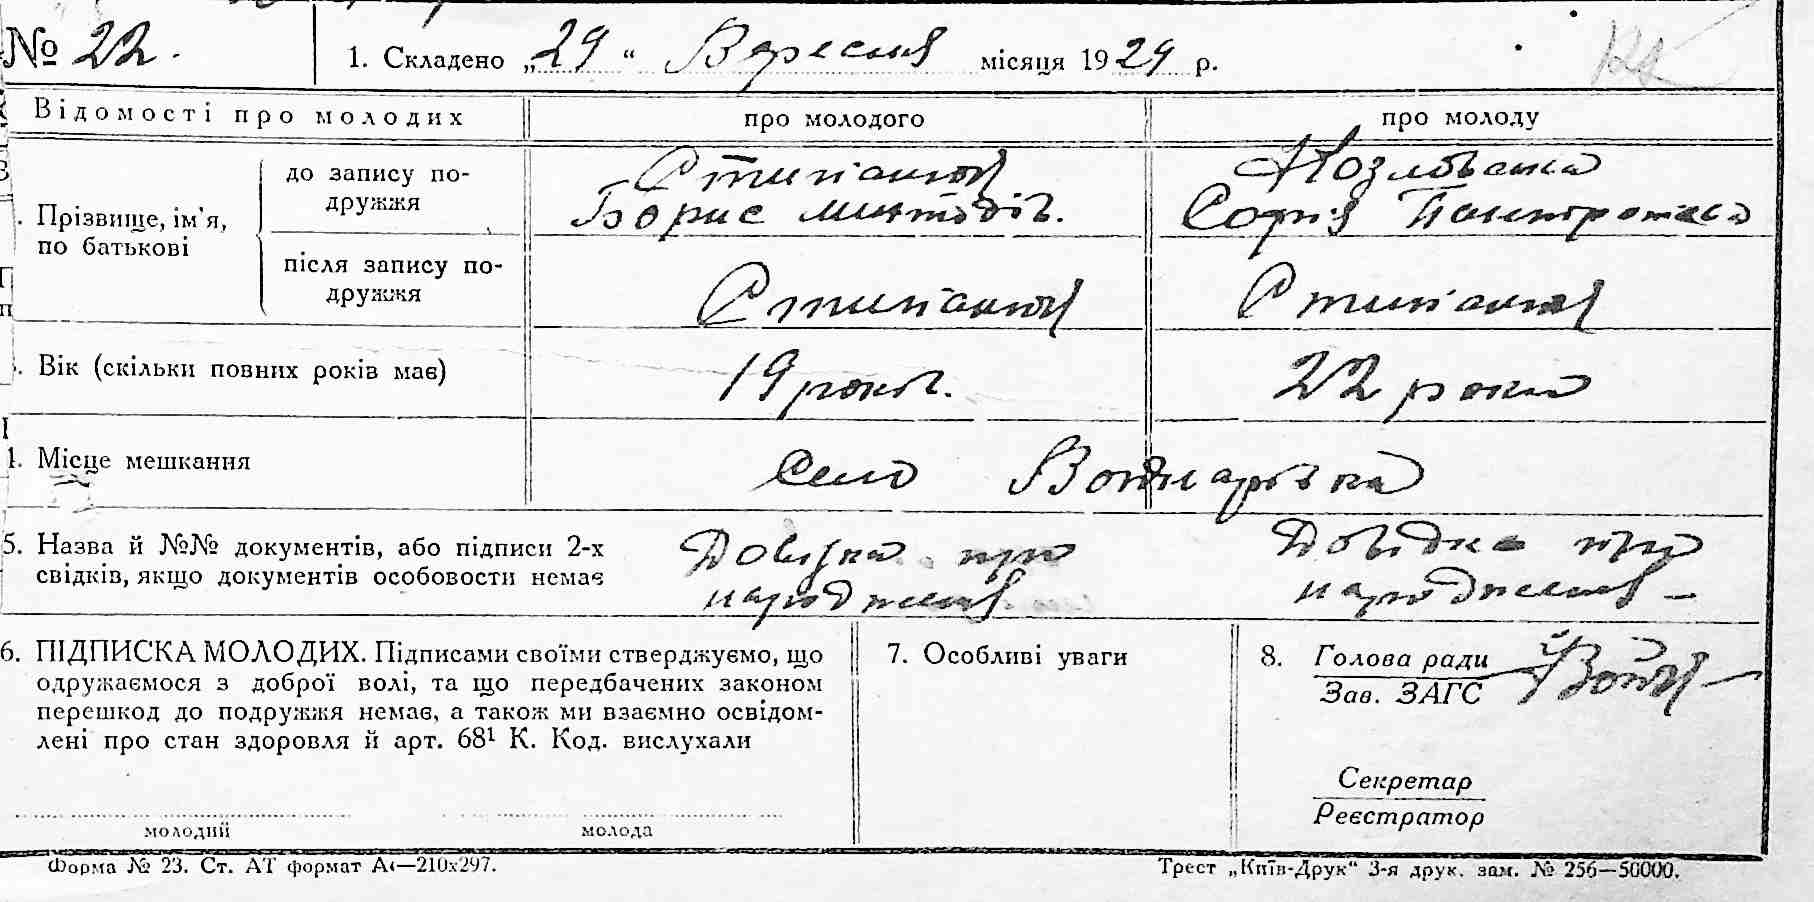 № 22.
1. Складено „29“ Вересня місяця 1929 р.
Відомості про молодих
про молодого
про молоду
Прізвище, ім'я, по батькові
до запису подружжя
Борис
Софія
після запису подружжя
Вік (скільки повних років має)
19 років.
22 роки
4. Місце мешкання
село
5. Назва й №№ документів, або підписи 2-х
свідків, якщо документів особовости немає
Довідка про
народження
Довідка про
народження –
6. ПІДПИСКА МОЛОДИХ. Підписами своїми стверджуємо, що
одружаємося з доброї волі, та що передбачених законом
перешкод до подружжя немає, а також ми взаємно освідом-
лені про стан здоровля й арт. 68¹ К. Код. вислухали
молодий
молода
7. Особливі уваги
8. Голова ради
Зав. ЗАГС
Секретар
Реєстратор
Форма № 23. Ст. АТ формат А4—210х297.
Трест „Київ-Друк“ 3-я друк. зам. № 256—50000.